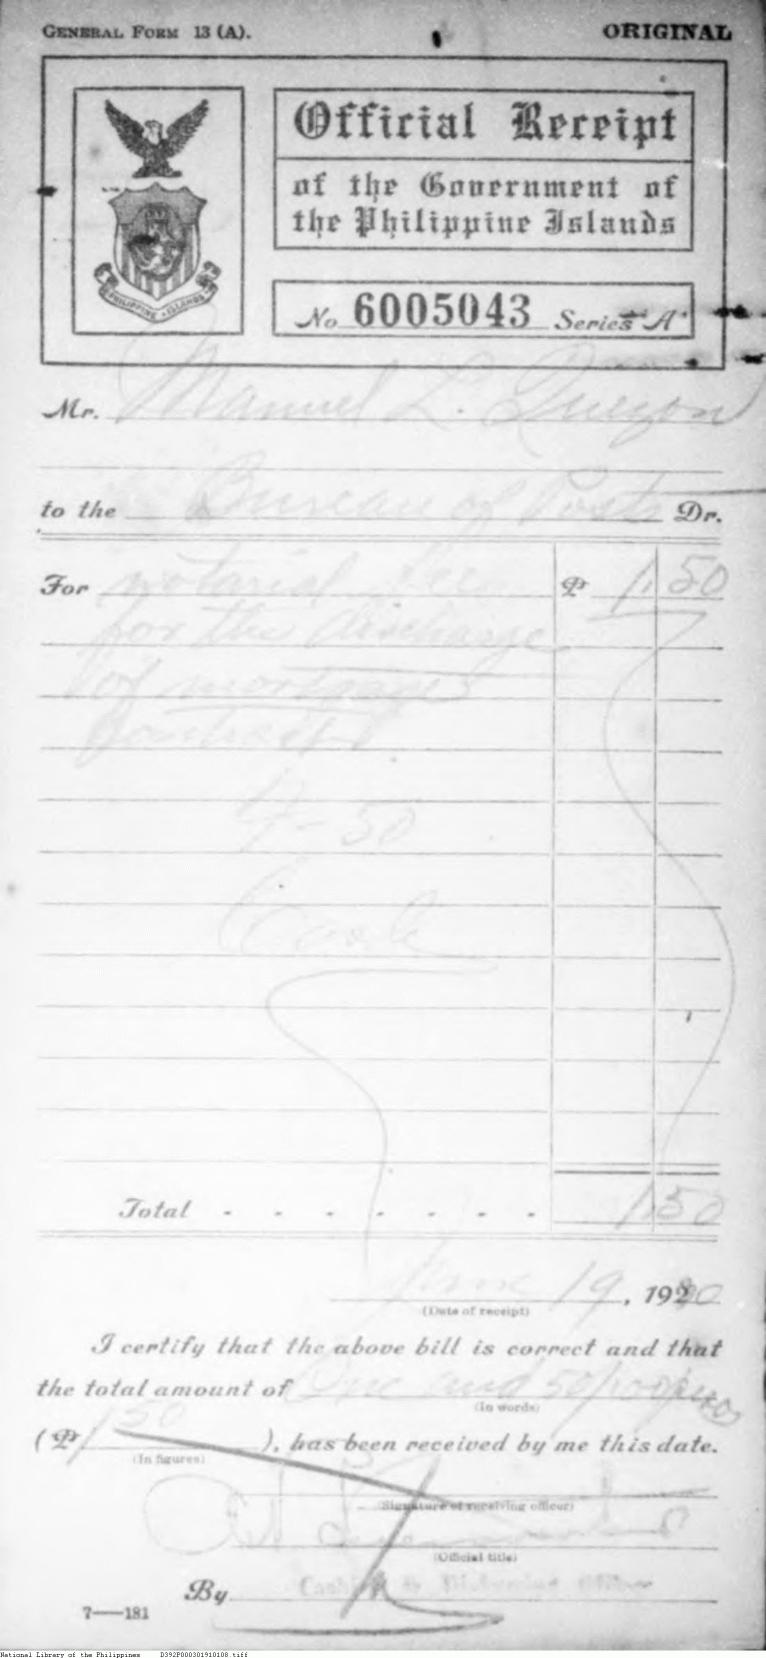 GENERAL FORM 13 (A).
ORIGINAL
PHILIPPINE ISLANDS
Official Receipt
of the Government of
the Philippine Islands
No 6005043 Series "A"
Mr. Manuel L. Quezon
to the Bureau of Posts Dr.
For notarial fee ₱ 1.50
for the discharge
of mortgage
contract
4-50
Total - - - - - - - 1.50
June 19, 1920
(Date of receipt)
I certify that the above bill is correct and that
the total amount of One and 50/100 pesos
(In words)
(₱ 1 50 ), has been received by me this date.
(In figures)
(Signature of receiving officer)
(Official title)
Cashier & Disbursing Officer
By
7—181
National Library of the Philippines D392P000301910108.tiff